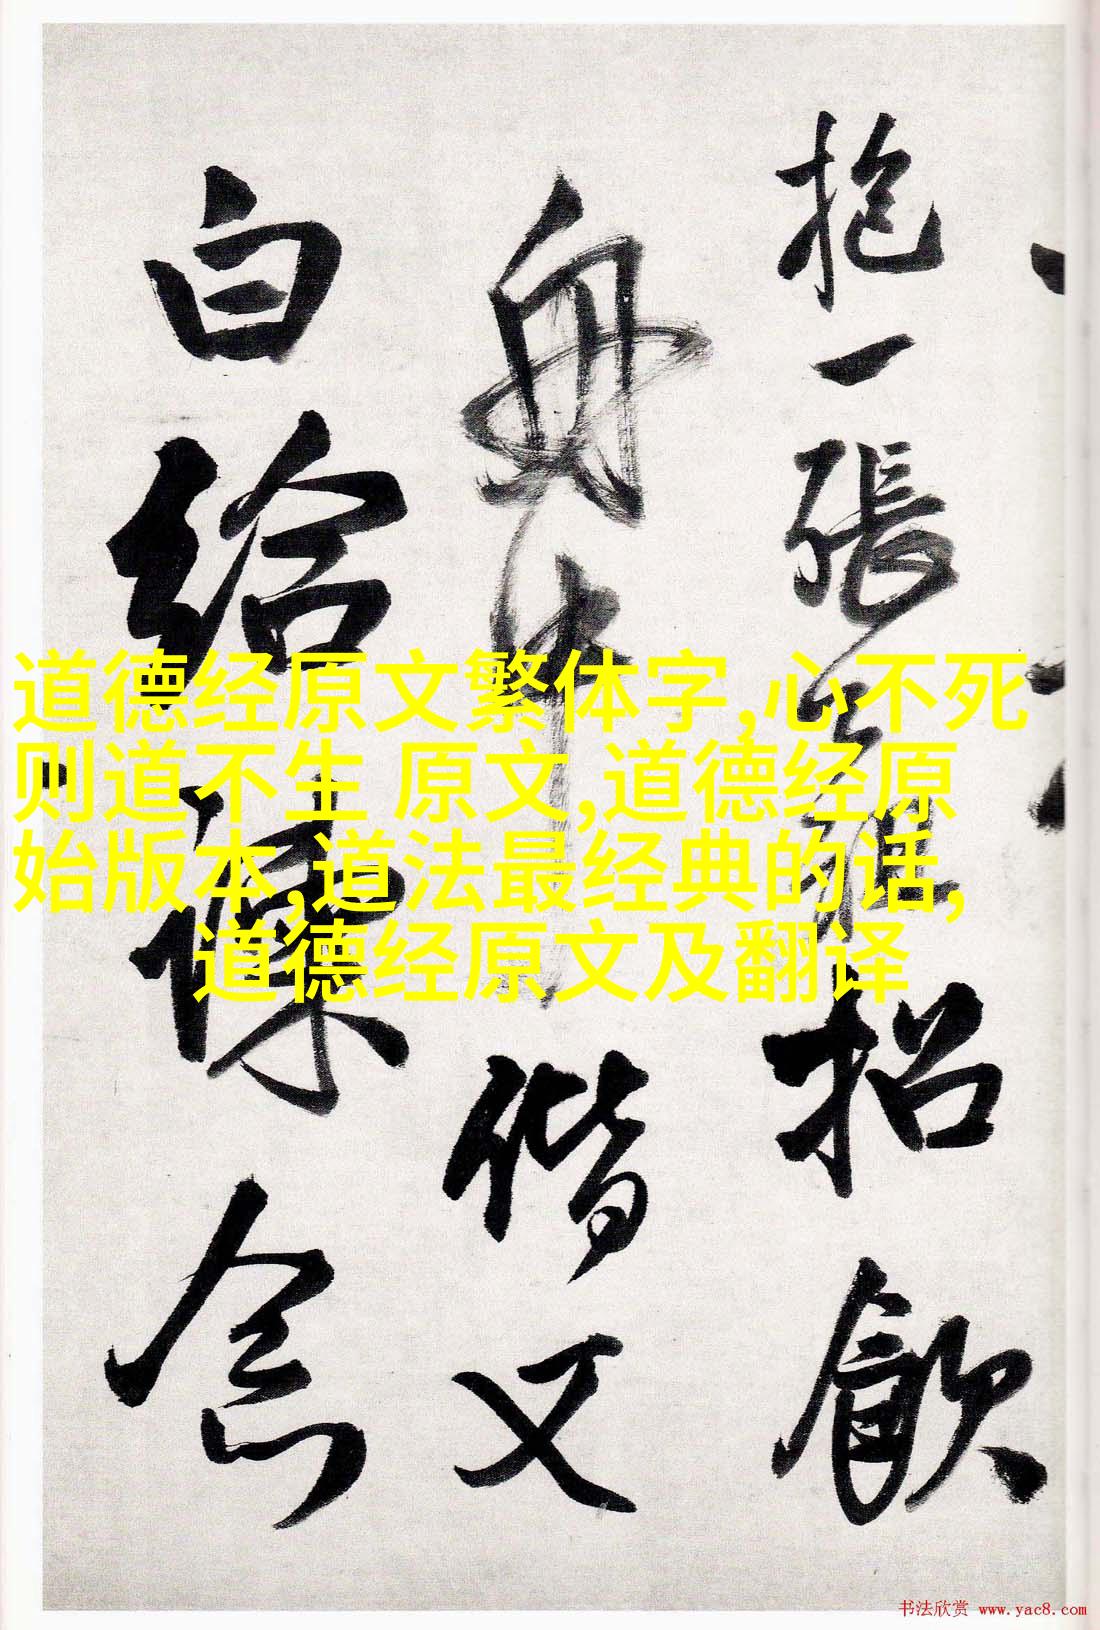 抱一張
招飲
舟中
偕又
白給諫念
道德经原文繁体字,心不死
则道不生 原文,道德经原
始版本,道法最经典的话,
道德经原文及翻译
书法欣赏 www.yac8.com